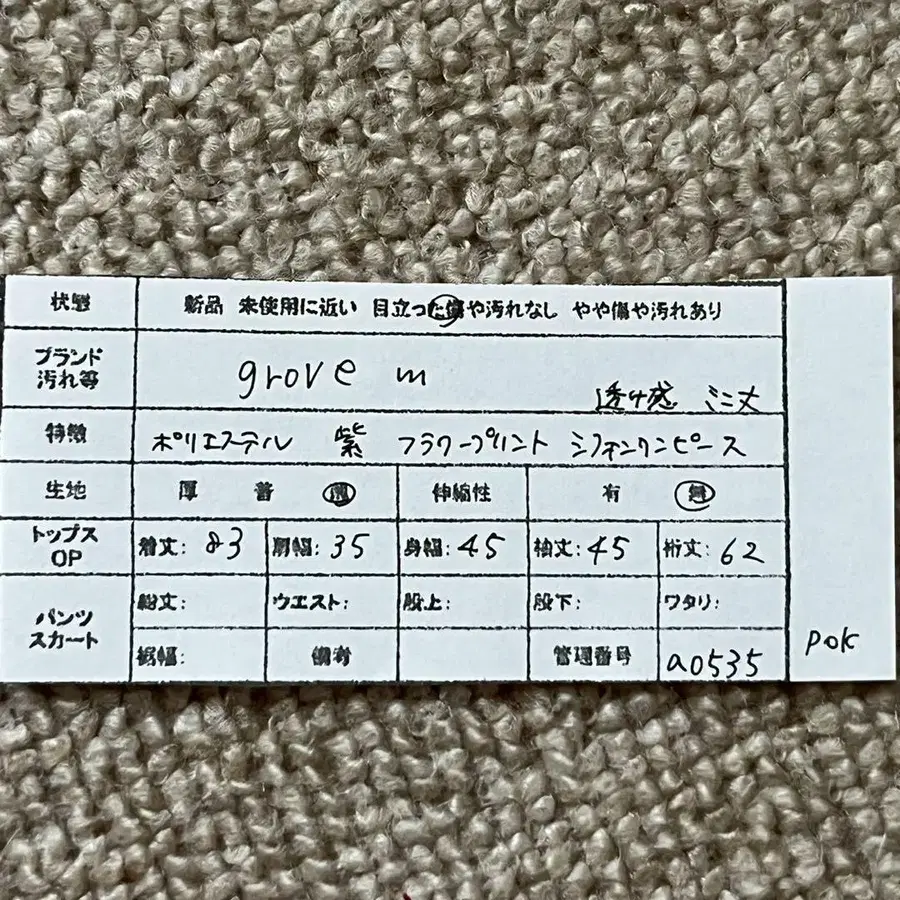 状態 新品 未使用に近い 目立った傷や汚れなし やや傷や汚れあり
ブランド
汚れ等
grove m
透け感 ミニ丈
特徴 ポリエステル 紫 フラワープリント シフォンワンピース
生地 厚 普 薄 伸縮性 有 無
トップス
OP
着丈: 83 肩幅: 35 身幅: 45 袖丈: 45 裄丈: 62
パンツ
スカート
総丈: ウエスト: 股上: 股下: ワタリ:
裾幅: 備考 管理番号 a0535
pok